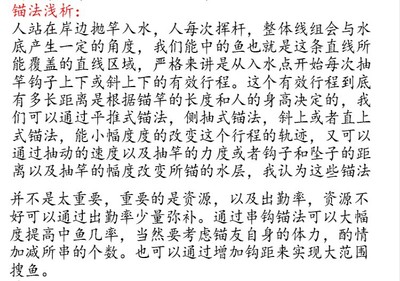 锚法浅析：
人站在岸边抛竿入水，人每次挥杆，整体线组会与水
底产生一定的角度，我们能中的鱼也就是这条直线所
能覆盖的直线区域，严格来讲是从入水点开始每次抽
竿钩子上下或斜上下的有效行程。这个有效行程到底
有多长距离是根据锚竿的长度和人的身高决定的，我
们可以通过平推式锚法，侧抽式锚法，斜上或者直上
式锚法，能小幅度度的改变这个行程的轨迹，又可以
通过抽动的速度以及抽竿的力度或者钩子和坠子的距
离以及抽竿的幅度改变所锚的水层，我认为这些锚法
并不是太重要，重要的是资源，以及出勤率，资源不
好可以通过出勤率少量弥补。通过串钩锚法可以大幅
度提高中鱼几率，当然要考虑锚友自身的体力，酌情
加减所串的个数。也可以通过增加钩距来实现大范围
搜鱼。